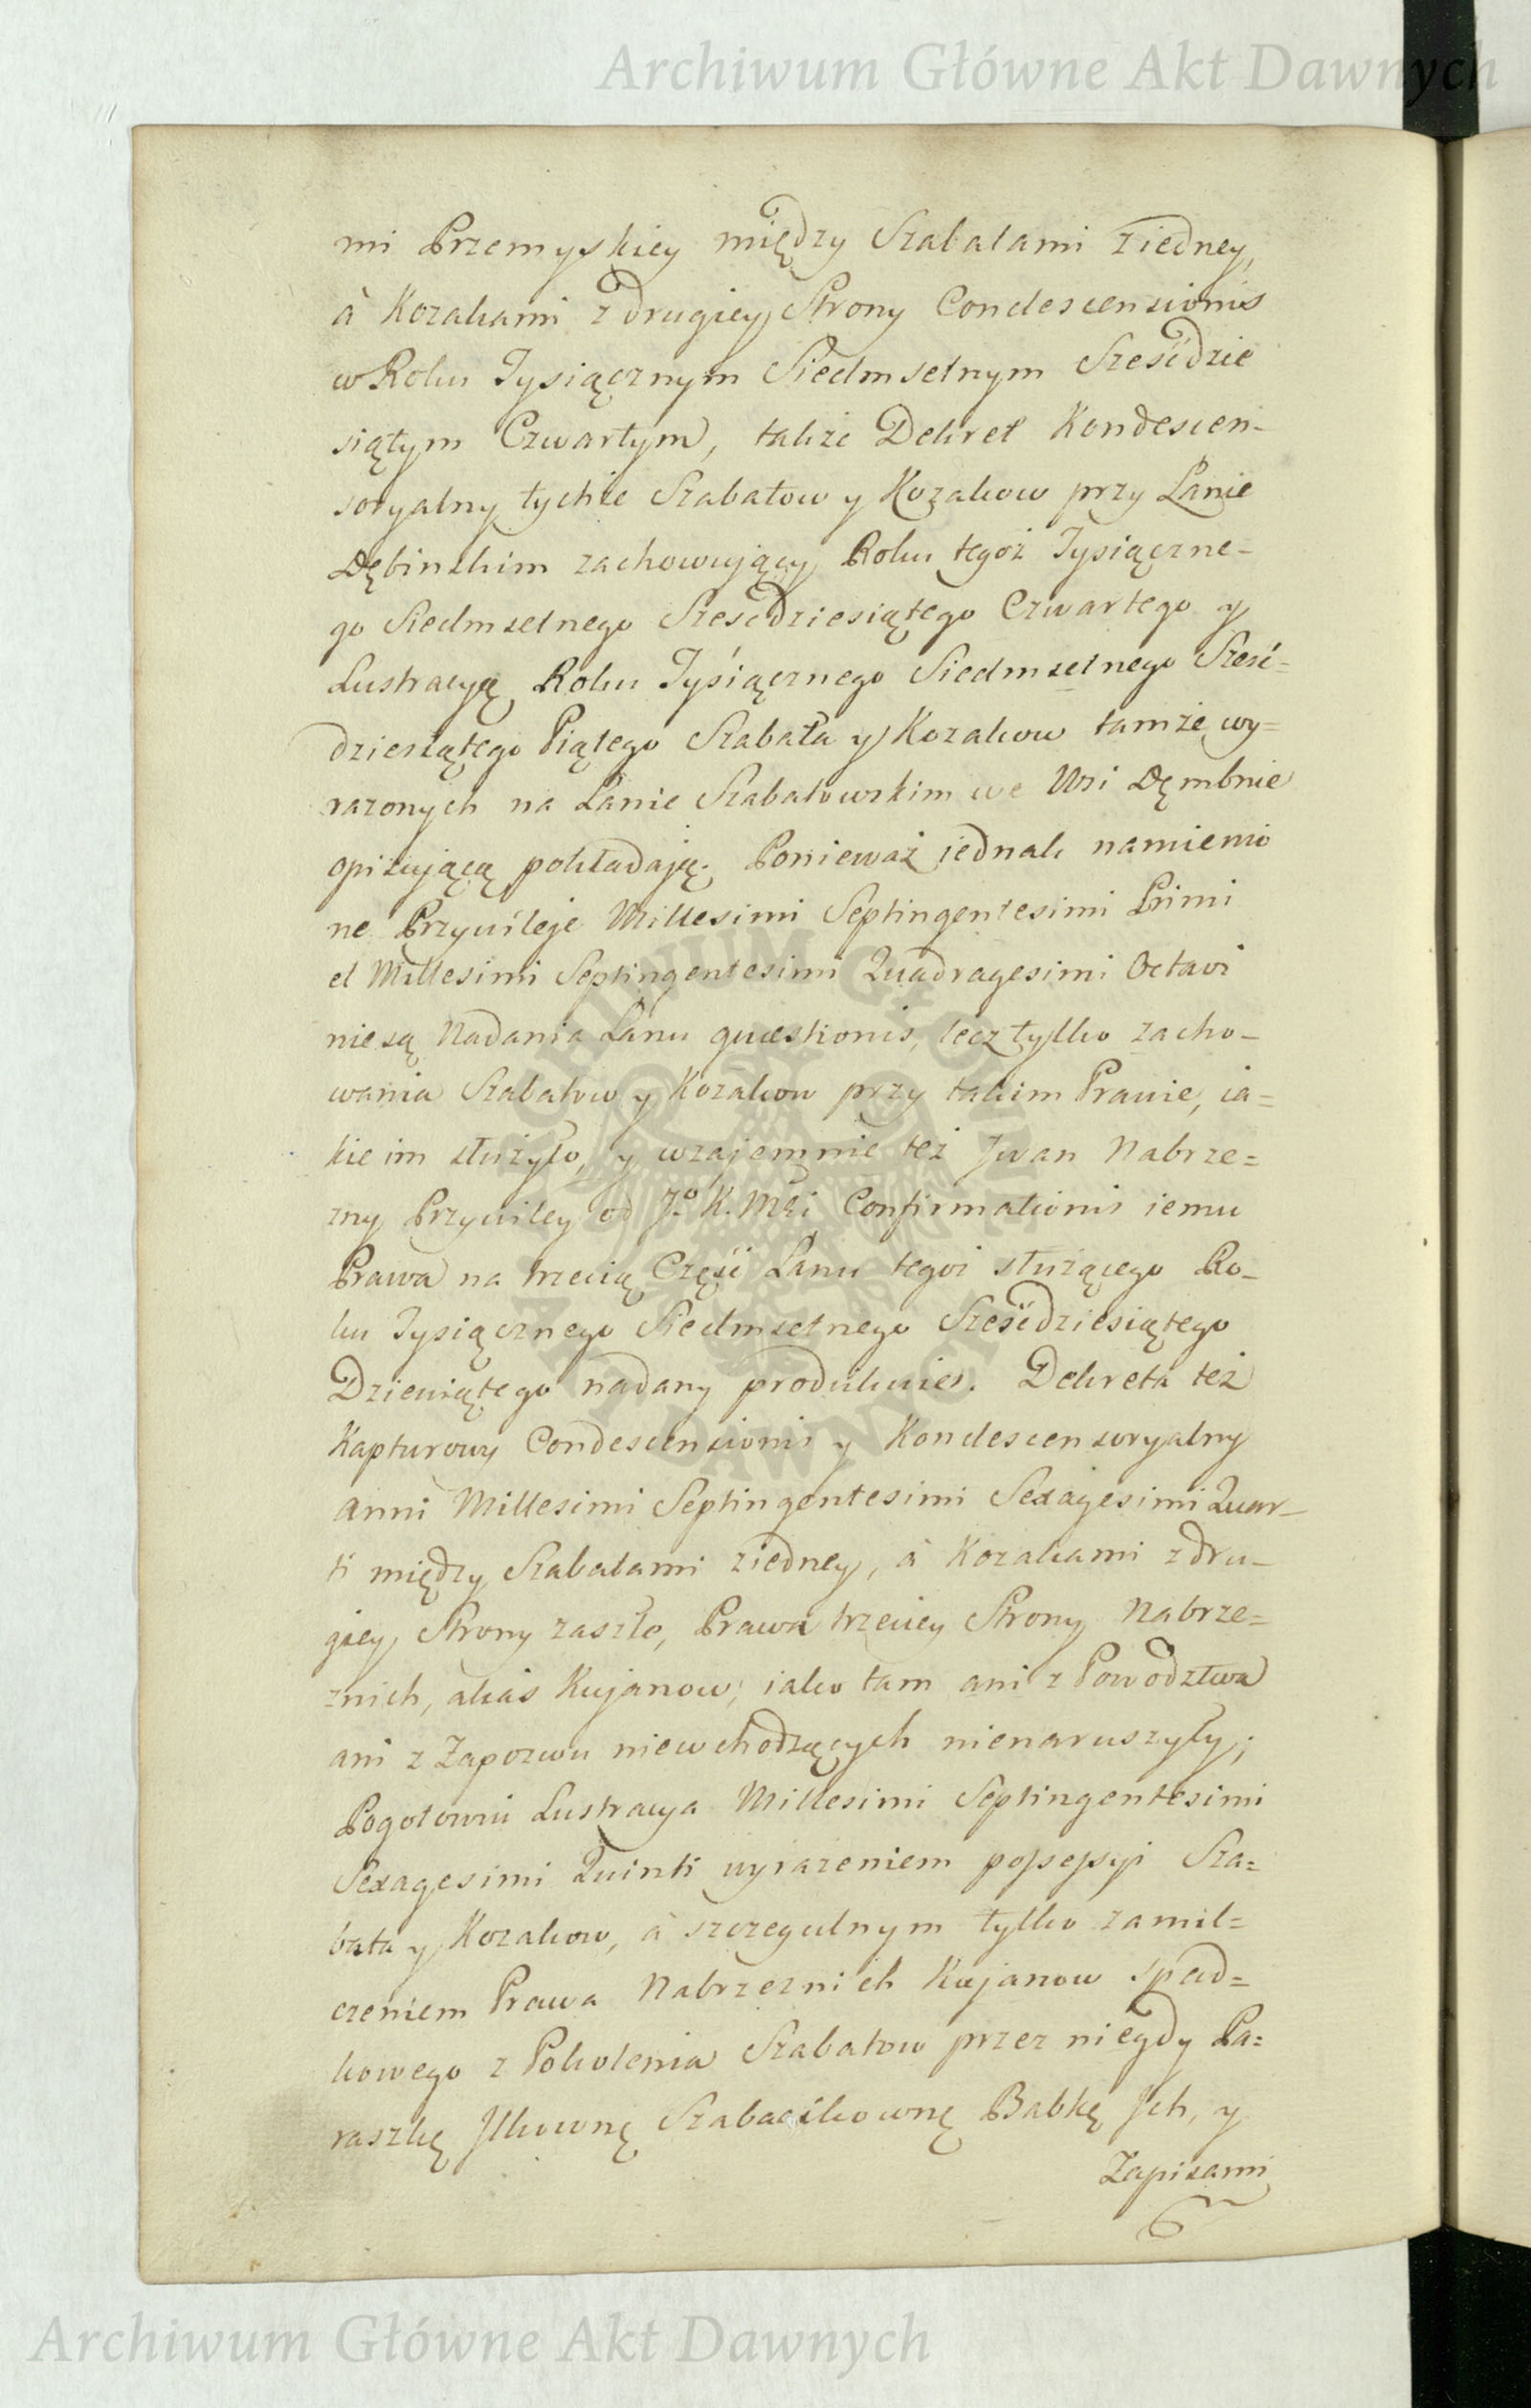 Archiwum Główne Akt Dawnych
mi Przemyskiey między Szabałami ziedney,
à Kozakami z drugiey Strony Condescensionis
w Roku Tysiącznym Siedmsetnym Sześćdzie
siątym Czwartym, także Dekret Kondescen-
soryalny tychże Szabałow y Kozakow przy Łanie
Dębinskim zachowujący Roku tegoż Tysiączne-
go Siedmsetnego Szescdziesiątego Czwartego y
Lustracyą Roku Tysiącznego Siedmsetnego Sześć=
dziesiątego Piątego Szabała y Kozakow tamże wy=
razonych na Łanie Szabałowskim we Wsi Dęmbnie
opisującą pokładają. Ponieważ jednak namienio
ne Przywileje Millesimi Septingentesimi Primi
et Millesimi Septingentesimi Quadragesimi Octavi
nie są Nadania Łanu quæstionis, lecz tylko zacho-
wania Szabałow y Kozakow przy takim Prawie, ia=
kie im służyło, y wzajemnie też Jwan Nabrze=
zny Przywiley od J.º K. Mści Confirmationis iemu
Prawa na trzecią Część Łanu tegoż służącego Ro-
ku Tysiącznego Siedmsetnego Sześćdziesiątego
Dziewiątego nadany produkuie. Dekreta też
Kapturowy Condescensionis y Kondescensoryalny
anni Millesimi Septingentesimi Sexagesimi Quar-
ti między Szabałami ziedney, à Kozakami z dru-
giey Strony zaszłe, Prawa trzeciey Strony Nabrze=
znich, alias Kujanow, iako tam ani z Powodztwa
ani z Zapozwu niewchodzących nienaruszyły;
Pogotowiu Lustracya Millesimi Septingentesimi
Sexagesimi Quinti wyrażeniem possessyi Sza=
bała y Kozakow, à szczegulnym tylko zamil=
czeniem Prawa Nabrzeznich Kujanow spad=
kowego z Pokolenia Szabałow przez niegdy Pa=
raszkę Jlkownę Szabacikownę Babkę Jch, y
Zapisami
ARCHIWUM GŁÓWNE
AKT DAWNYCH
Archiwum Główne Akt Dawnych